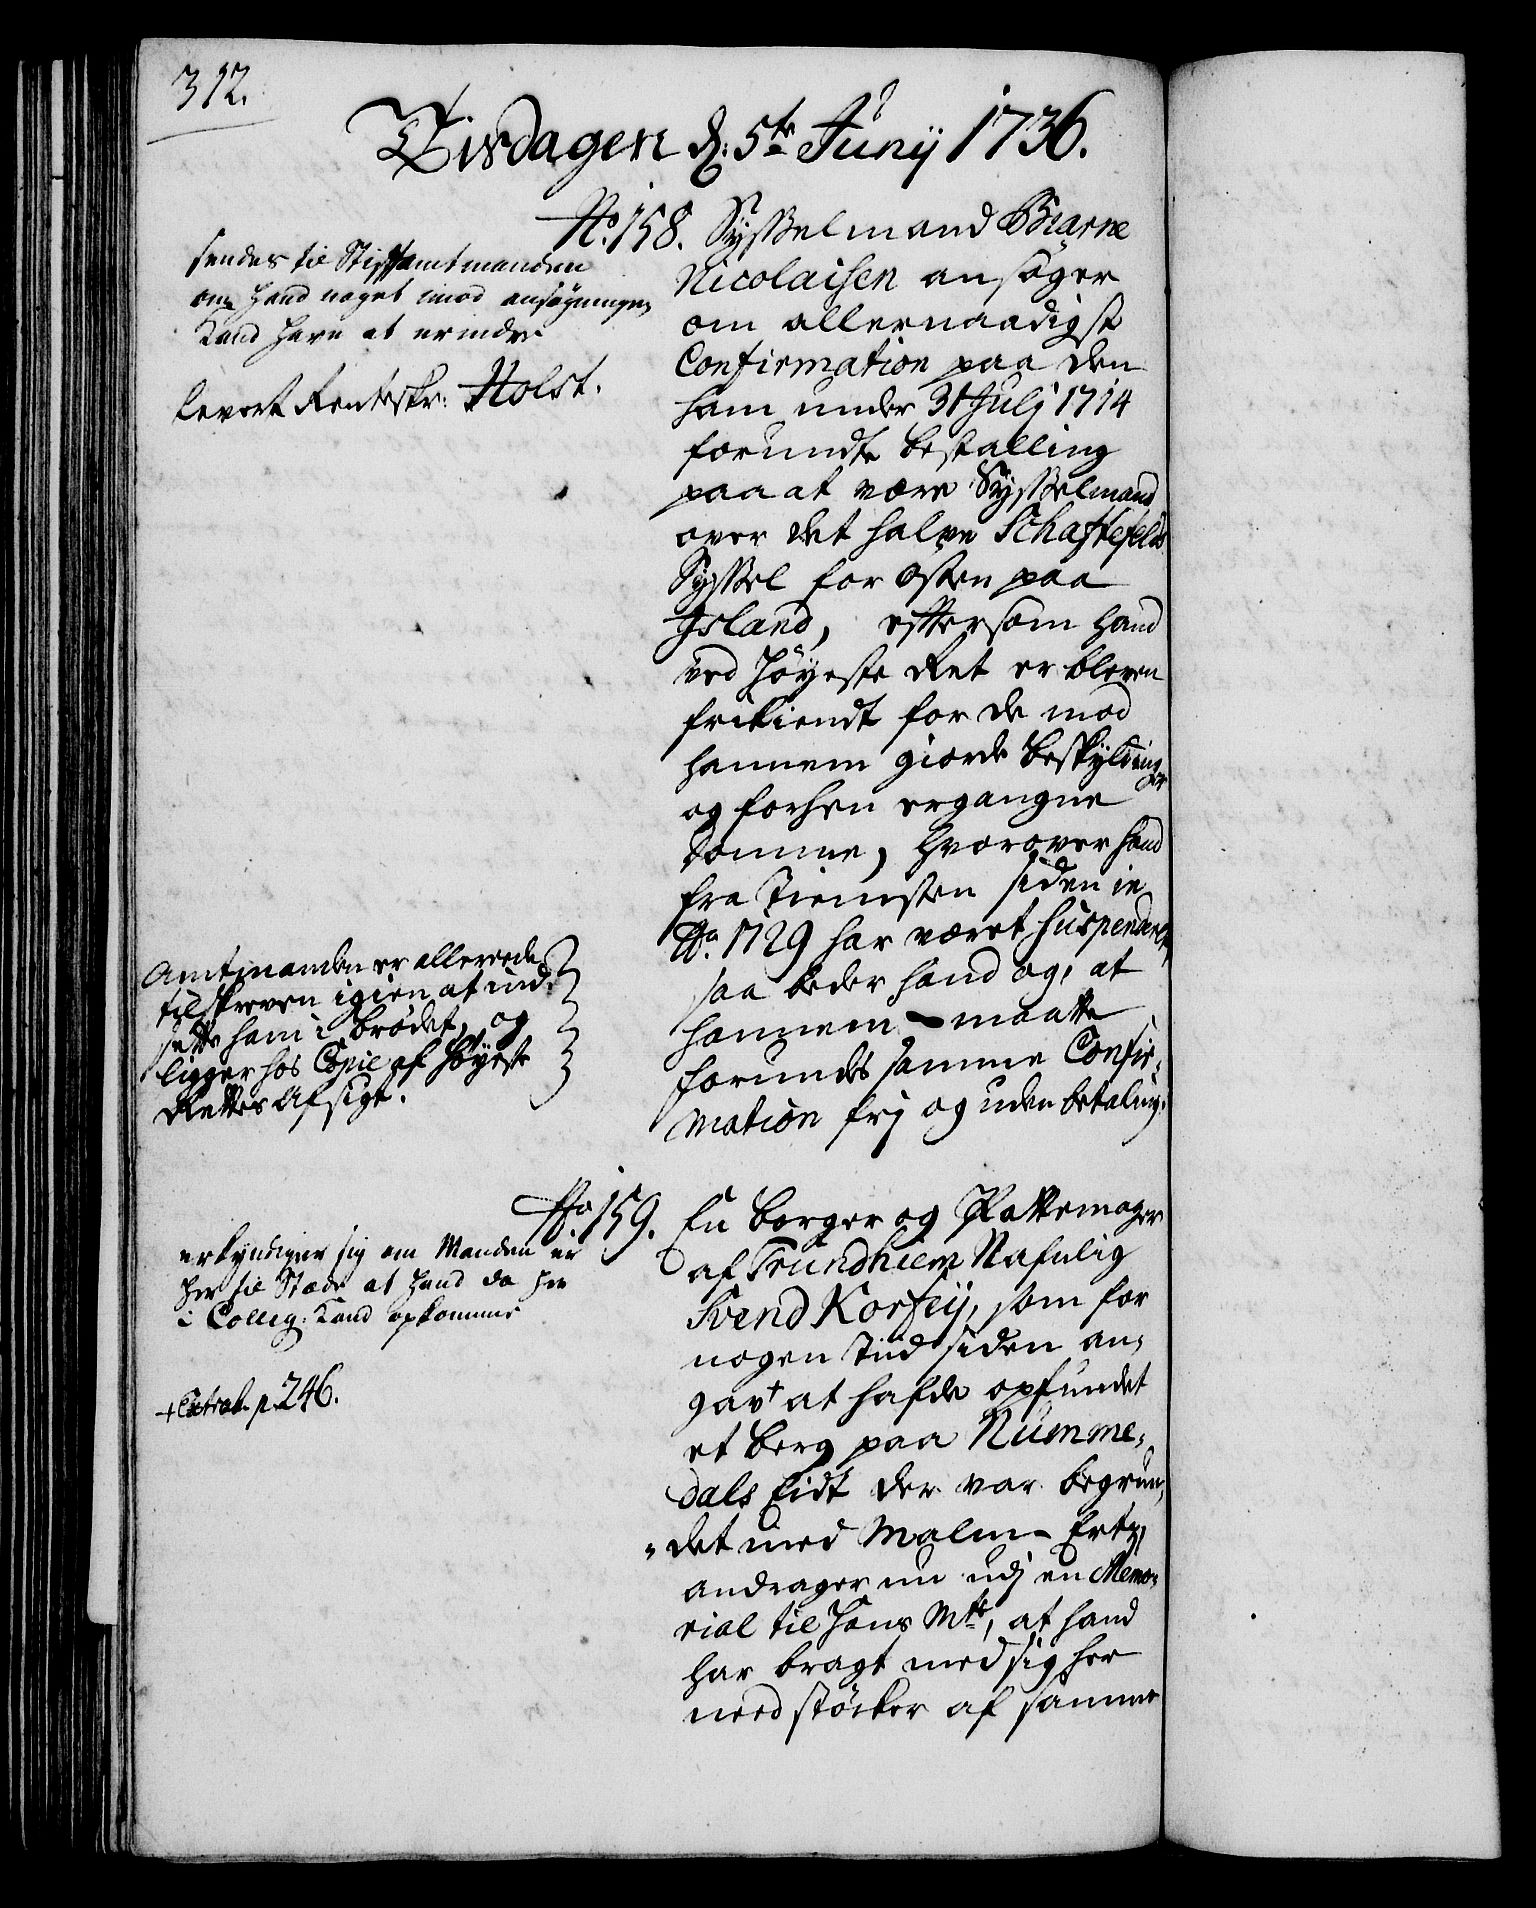 312.
Tirsdagen d: 5te Junij 1736.
No. 158. Sysselmand Biarne
Nicolaisen ansøger
om allernaadigst
Confirmation paa den
ham under 31 Julj 1714
forundte bestalling
paa at være Sysselmand
over det halve Schaftefelds
Syssel for Osten paa
Jsland, eftersom hand
ved Høyeste Ret er bleven
frikiendt for de mod
hannem giorde beskyldning
er
og forhen ergangne
Domme, hvorover hand
fra Tienesten siden in
Ao. 1729 har været suspenderet,
saa beder hand og, at
hannem maatte
forundes samme Confir-
mation frj og uden betaling.
sendes til Stiftamtmanden
om hand noget imod ansøgningen
Kand have at erindre
levert Renteskr: Holst.
Amtmanden er allereede
tilskreven igien at ind-
sette ham i brødet, og
ligger hos Copie af Høyeste
Rettes Afsigt.
No. 159. En borger og Pottemager
af Trundhiem Nafnlig
Svend Korfeij, som for
nogen Tiid siden an-
gav + at hafde opfundet
et berg paa Numme-
dals Eidt der var begrun-
det med Malm-Ertz,
andrager nu udj en Memo-
rial til Hans Mte, at hand
har bragt med sig her
need støcker af samme
erkyndiges sig om Manden er
her til Stæde at hand da her
i Colleg: Kand opkomme
+ Extract p. 246.